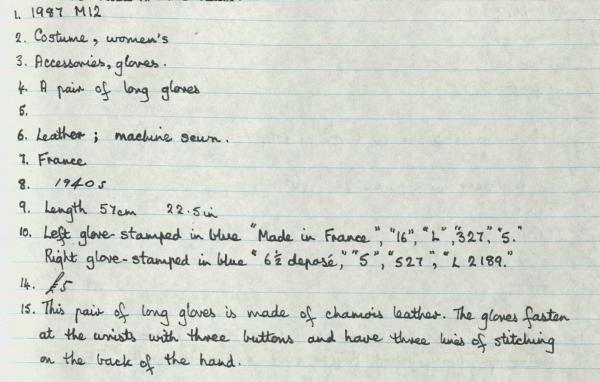 1. 1987 M12
2. Costume, women's
3. Accessories, gloves.
4. A pair of long gloves
5.
6. Leather; machine sewn.
7. France
8. 1940s
9. Length 57cm 22.5in
10. Left glove - stamped in blue "Made in France", "16", "L", "327", "5."
Right glove - stamped in blue "6½ deposé," "5", "527", "L 2189."
14. £5
15. This pair of long gloves is made of chamois leather. The gloves fasten
at the wrists with three buttons and have three lines of stitching
on the back of the hand.